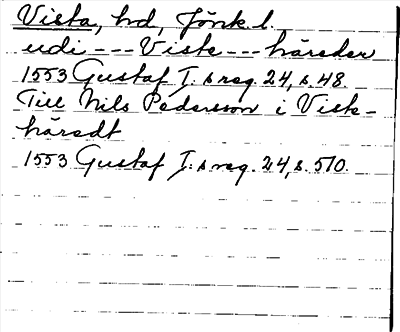 Vista, hd, Jönk. l.
udi --- Viste --- häreder
1553 Gustaf I:s reg. 24, s. 48.
Till Nils Pedersson i Viste-
häredt
1553 Gustaf I:s reg. 24, s. 510.